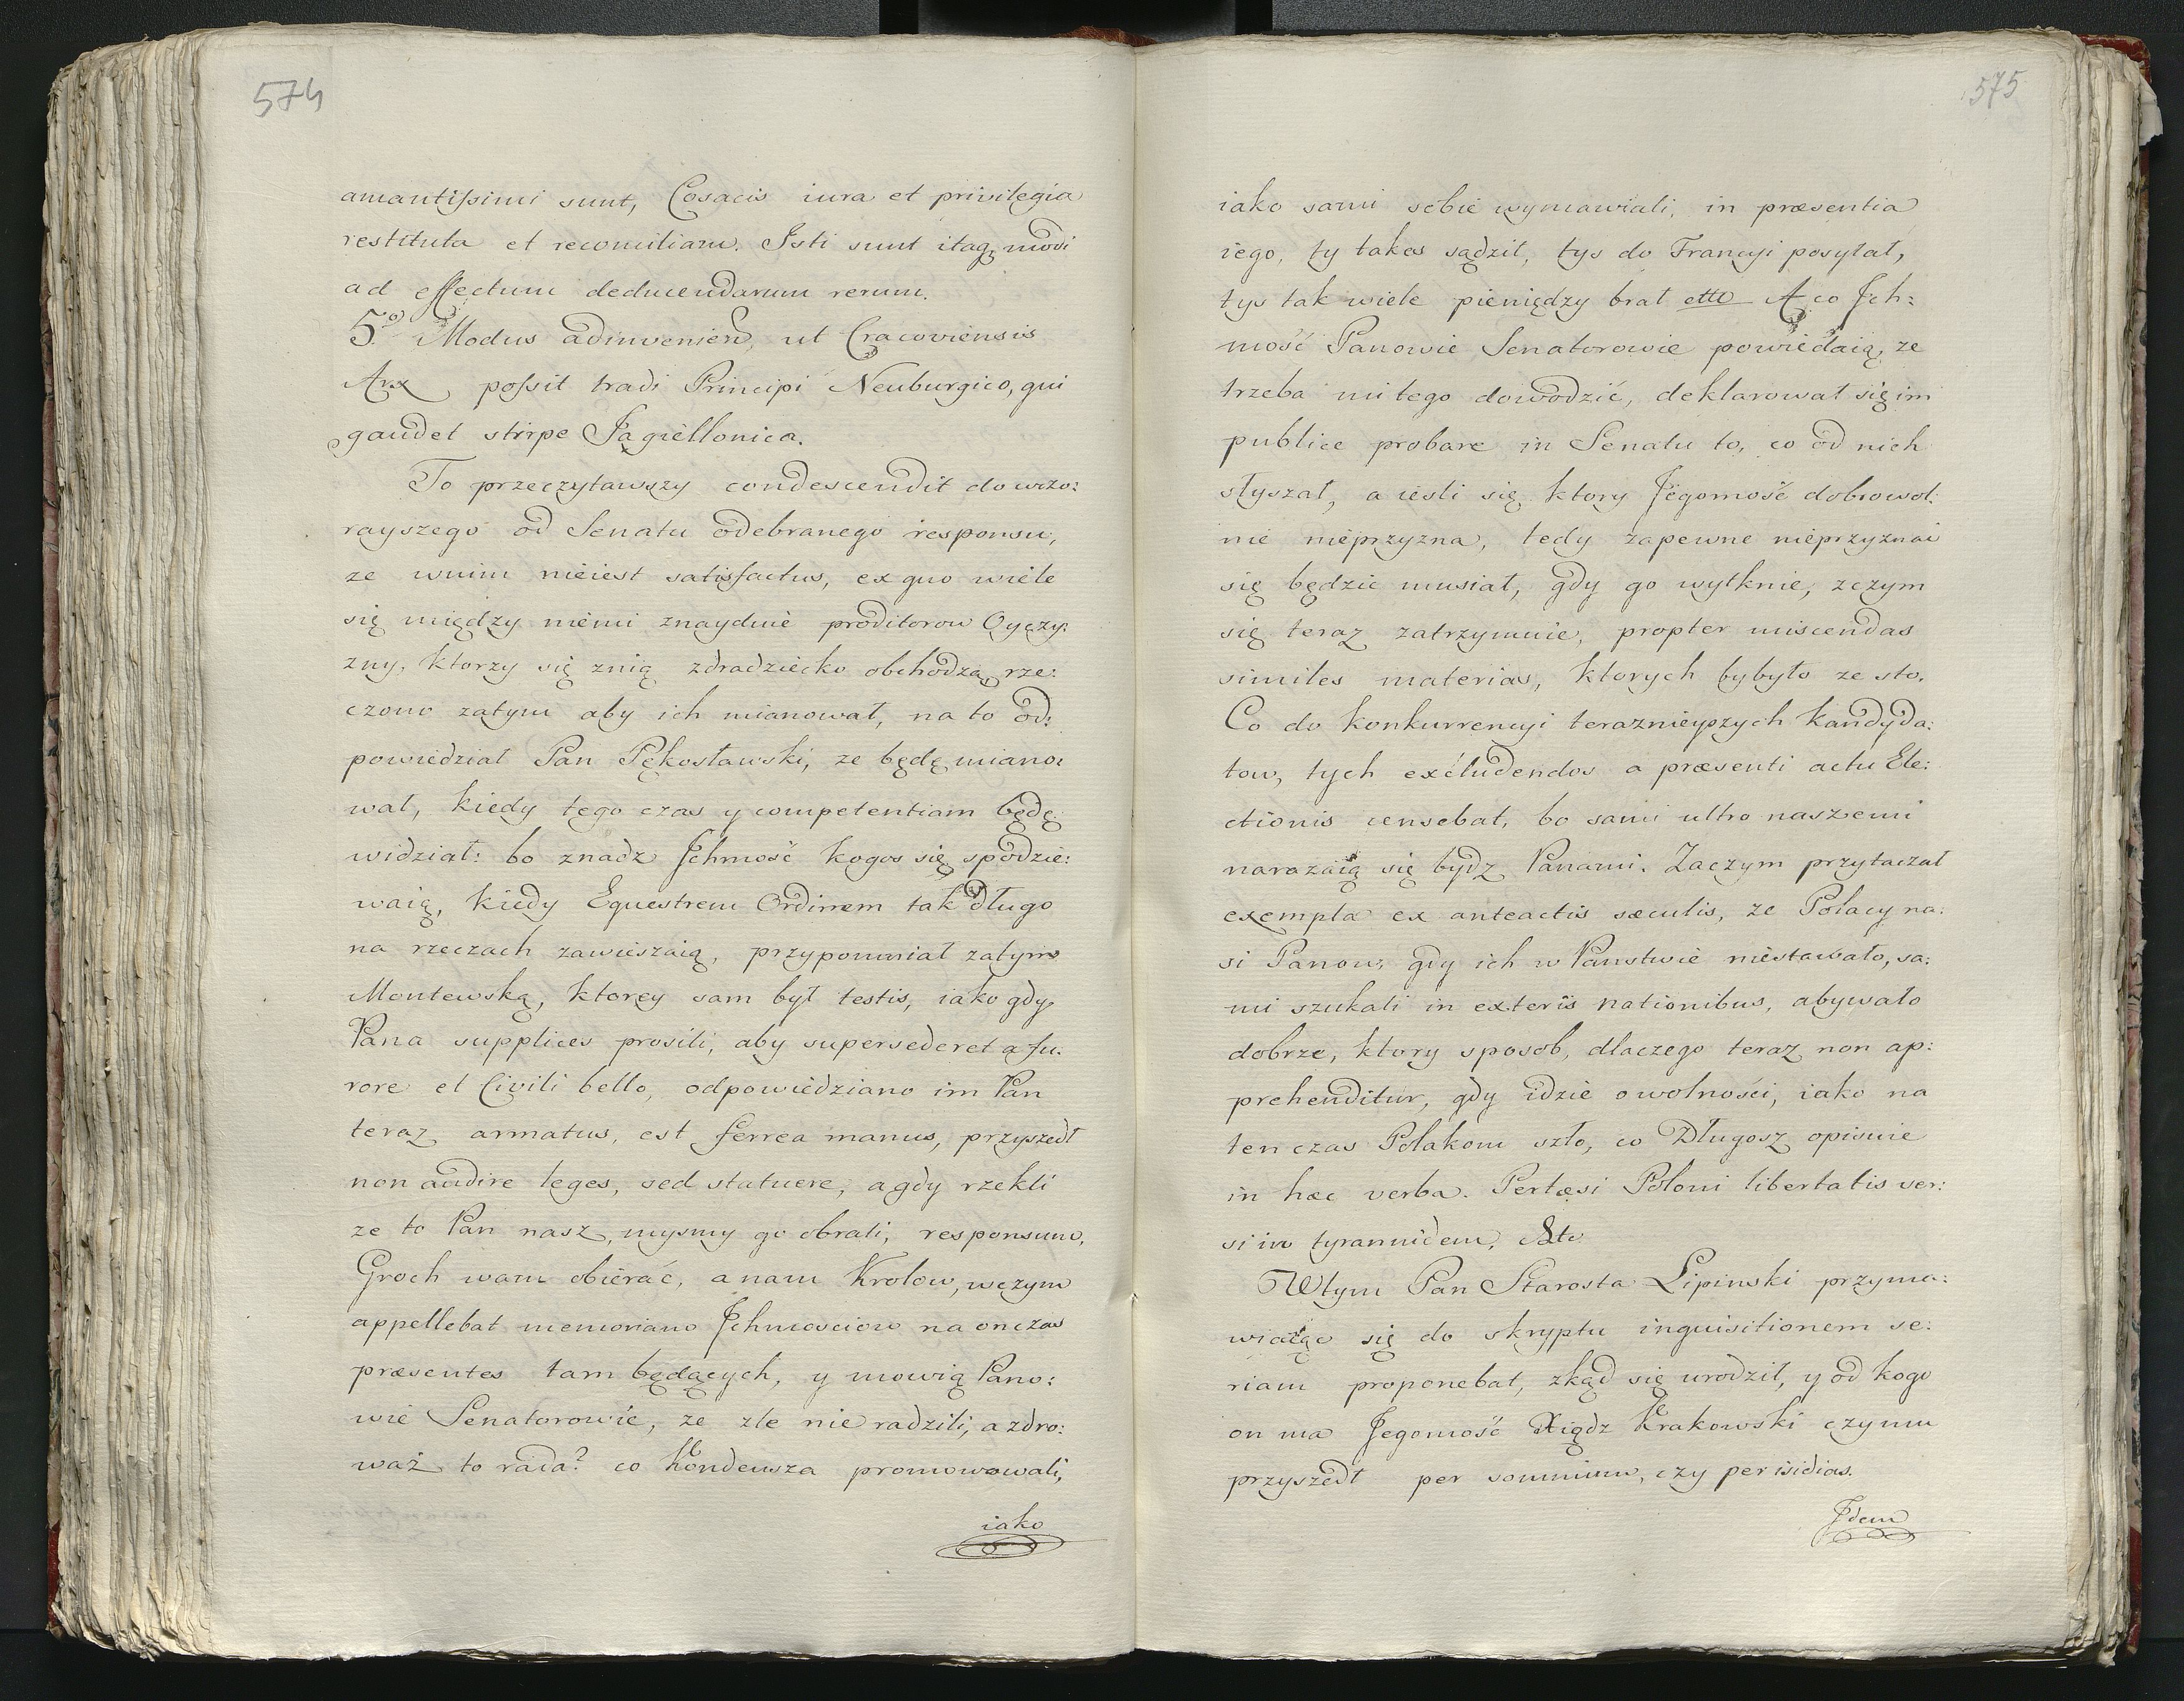 574
amantiſsimi sunt, Cosacis iura et privilegia
restituta et reconciliam. Isti sunt itaq; modi
ad effectum deducendarum rerum.
5º Modus adinveniend, ut Cracoviensis
Arx poſsit tradi Principi Neuburgico, qui
gaudet stirpe Jagiellonica.
To przeczytawszy condescendit do wczo:
rayszego od Senatu odebranego responsu,
ze wnim nieiest satisfactus, ex quo wiele
się między niemi znayduie proditorow Oyczy:
zny, ktorzy się znią zdradziecko obchodzą, rze:
czono zatym aby ich mianował, na to od:
powiedział Pan Pękosławski, ze będę miano:
wał, kiedy tego czas y competentiam będę
widział: bo znadz Jchmość kogos się spodzie:
waią, kiedy Equestrem Ordinem tak długo
na rzeczach zawieszaią, przypomniał zatym
Montewską, ktorey sam był testis, iako gdy
Pana supplices prosili, aby supersederet a fu:
rore et Civili bello, odpowiedziano im Pan
teraz armatus, est ferrea manus, przyszedł
non audire leges, sed statuere, a gdy rzekli
ze to Pan nasz, mysmy go obrali, responsum,
Groch wam obierać, a nam Krolow, wczym
appellebat memoriam Jchmosciow na onczas
præsentes tam będących, y mowią Pano:
wie Senatorowie, ze zle nie radzili, a zdro:
waż to rada? co Kondeusza promowowali,
iako
575
iako sami sobie wymawiali, in præsentia
iego, ty takes sądził, tys do Francyi posyłał,
tys tak wiele pieniędzy brał etc A co Jch:
mość Panowie Senatorowie powiedaią, ze
trzeba mi tego dowodzić, deklarował się im
publice probare in Senatu to, co od nich
słyszał, a iesli się ktory Jegomość dobrowol:
nie nieprzyzna, tedy zapewne nieprzyznai
się będzie musiał, gdy go wytknie, zczym
się teraz zatrzymuie, propter miscendas
similes materias, ktorych byłyło ze sto.
Co do konkurrencyi teraznieyszych kandyda:
tow, tych excludendos a præsenti actu Ele:
ctionis censebat, bo sami ultro naszemi
narazaią się bydz Panami. Zaczym przytaczał
exempla ex anteactis sæculis, ze Polacy na:
si Panow, gdy ich w Panstwie niestawało, sa:
mi szukali in exteris nationibus, abywało
dobrze, ktory sposob, dlaczego teraz non ap:
prehenditur, gdy idzie o wolności, iako na
ten czas Polakom szło, co Długosz opisuie
in hæc verba. Pertæsi Poloni libertatis ver:
si in tyrannidem, &tc
Wtym Pan Starosta Lipinski przyma:
wiaiąc się do skryptu inquisitionem se:
riam proponebat, zkąd się urodził, y od kogo
on ma Jegomość Xiądz Krakowski czy mu
przyszedł per somnium, czy per isidias.
Idem